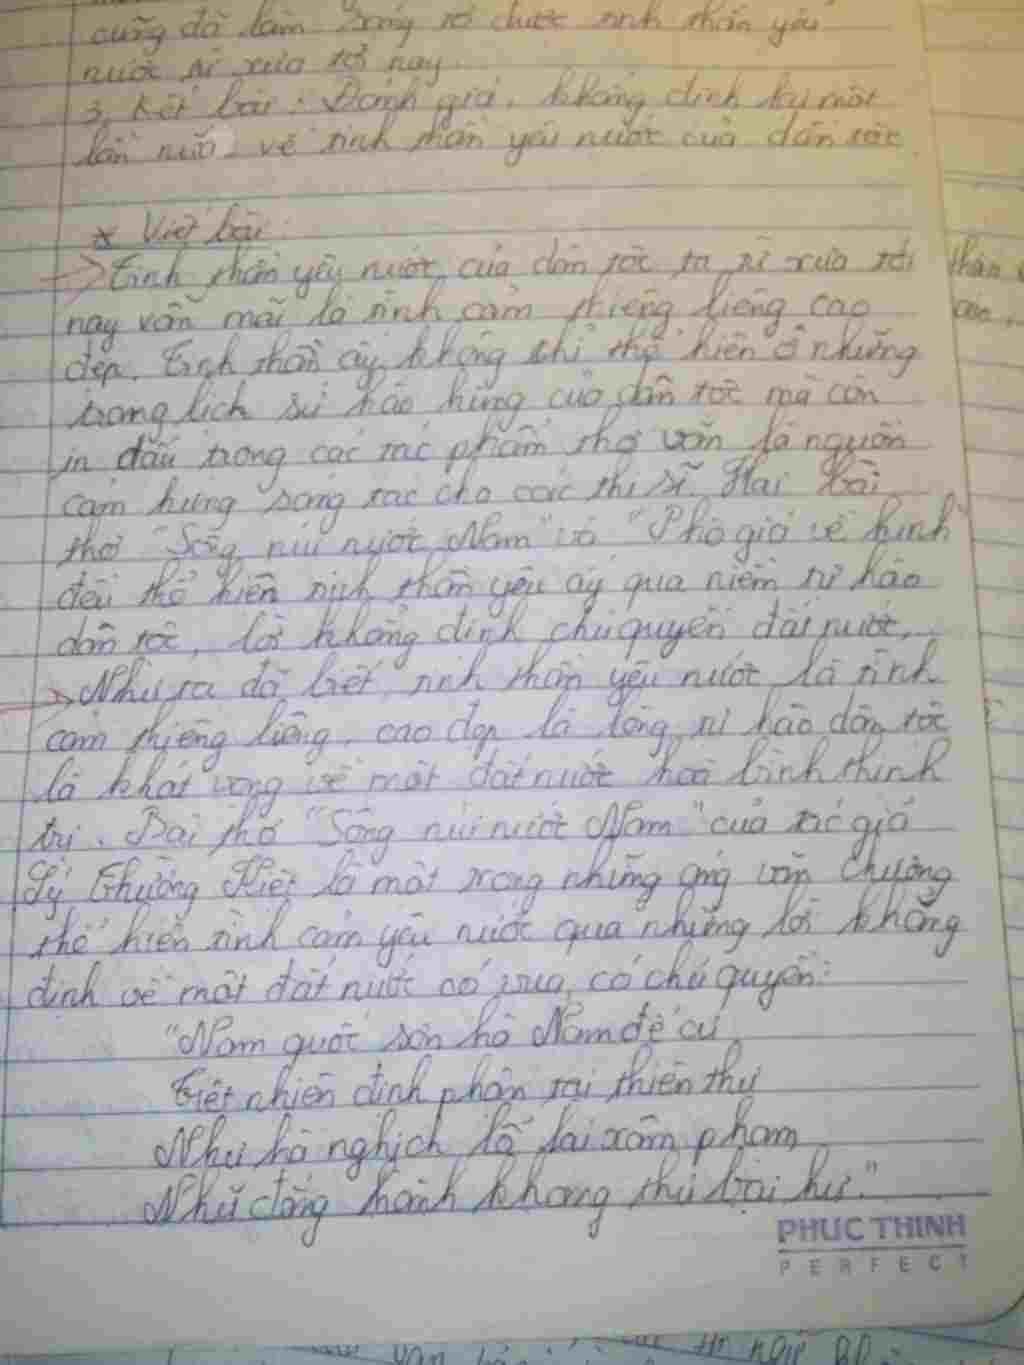 cũng đã làm sáng tỏ được tinh thần yêu
nước từ xưa tới nay.
3, Kết bài: Đánh giá, khẳng định lại một
lần nữa về tinh thần yêu nước của dân tộc.
* Viết bài:
→ Tinh thần yêu nước của dân tộc ta từ xưa tới
nay vẫn mãi là tình cảm thiêng liêng cao
đẹp. Tinh thần ấy không chỉ thể hiện ở những
trang lịch sử hào hùng của dân tộc mà còn
in dấu trong các tác phẩm thơ văn là nguồn
cảm hứng sáng tác cho các thi sĩ. Hai bài
thơ "Sông núi nước Nam" và "Phò giá về kinh"
đều thể hiện tinh thần yêu ấy qua niềm tự hào
dân tộc, lời khẳng định chủ quyền đất nước.
→ Như ta đã biết, tinh thần yêu nước là tình
cảm thiêng liêng, cao đẹp là lòng tự hào dân tộc
là khát vọng về một đất nước hoà bình thịnh
trị. Bài thơ "Sông núi nước Nam" của tác giả
Lý Thường Kiệt là một trong những áng văn chương
thể hiện tình cảm yêu nước qua những lời khẳng
định về một đất nước có vua, có chủ quyền:
"Nam quốc sơn hà Nam đế cư
Tiệt nhiên định phận tại thiên thư
Như hà nghịch lỗ lai xâm phạm
Nhữ đẳng hành khan thủ bại hư."
PHUC THINH
PERFECT